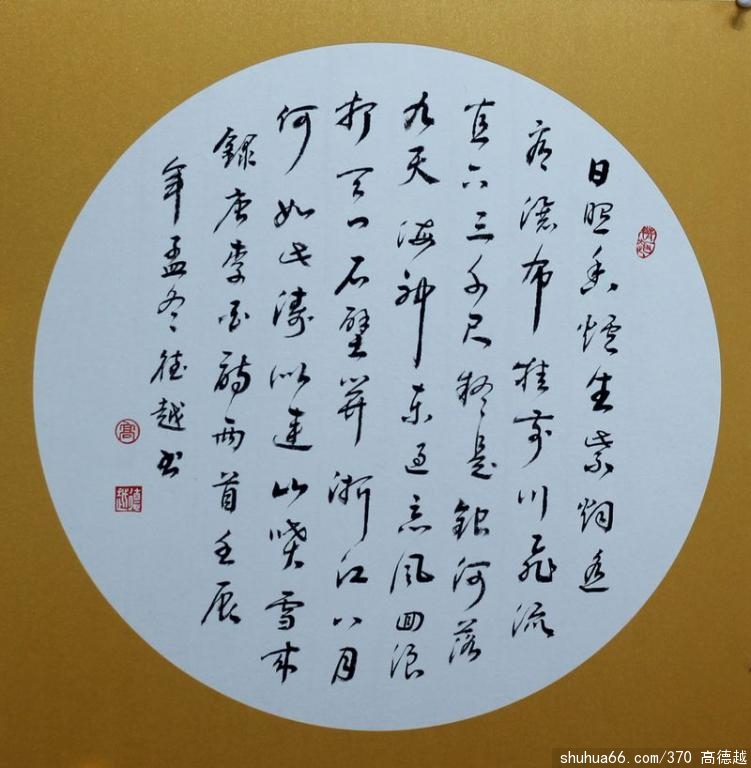 日照香爐生紫烟遥
看瀑布挂前川飛流
直下三千尺疑是銀河落
九天海神来過惡風回浪
打天门石壁開浙江八月
何如此濤似連山噴雪来
録唐李白詩两首壬辰
年孟冬德越书
高
德越
shuhua66.com/370 高德越